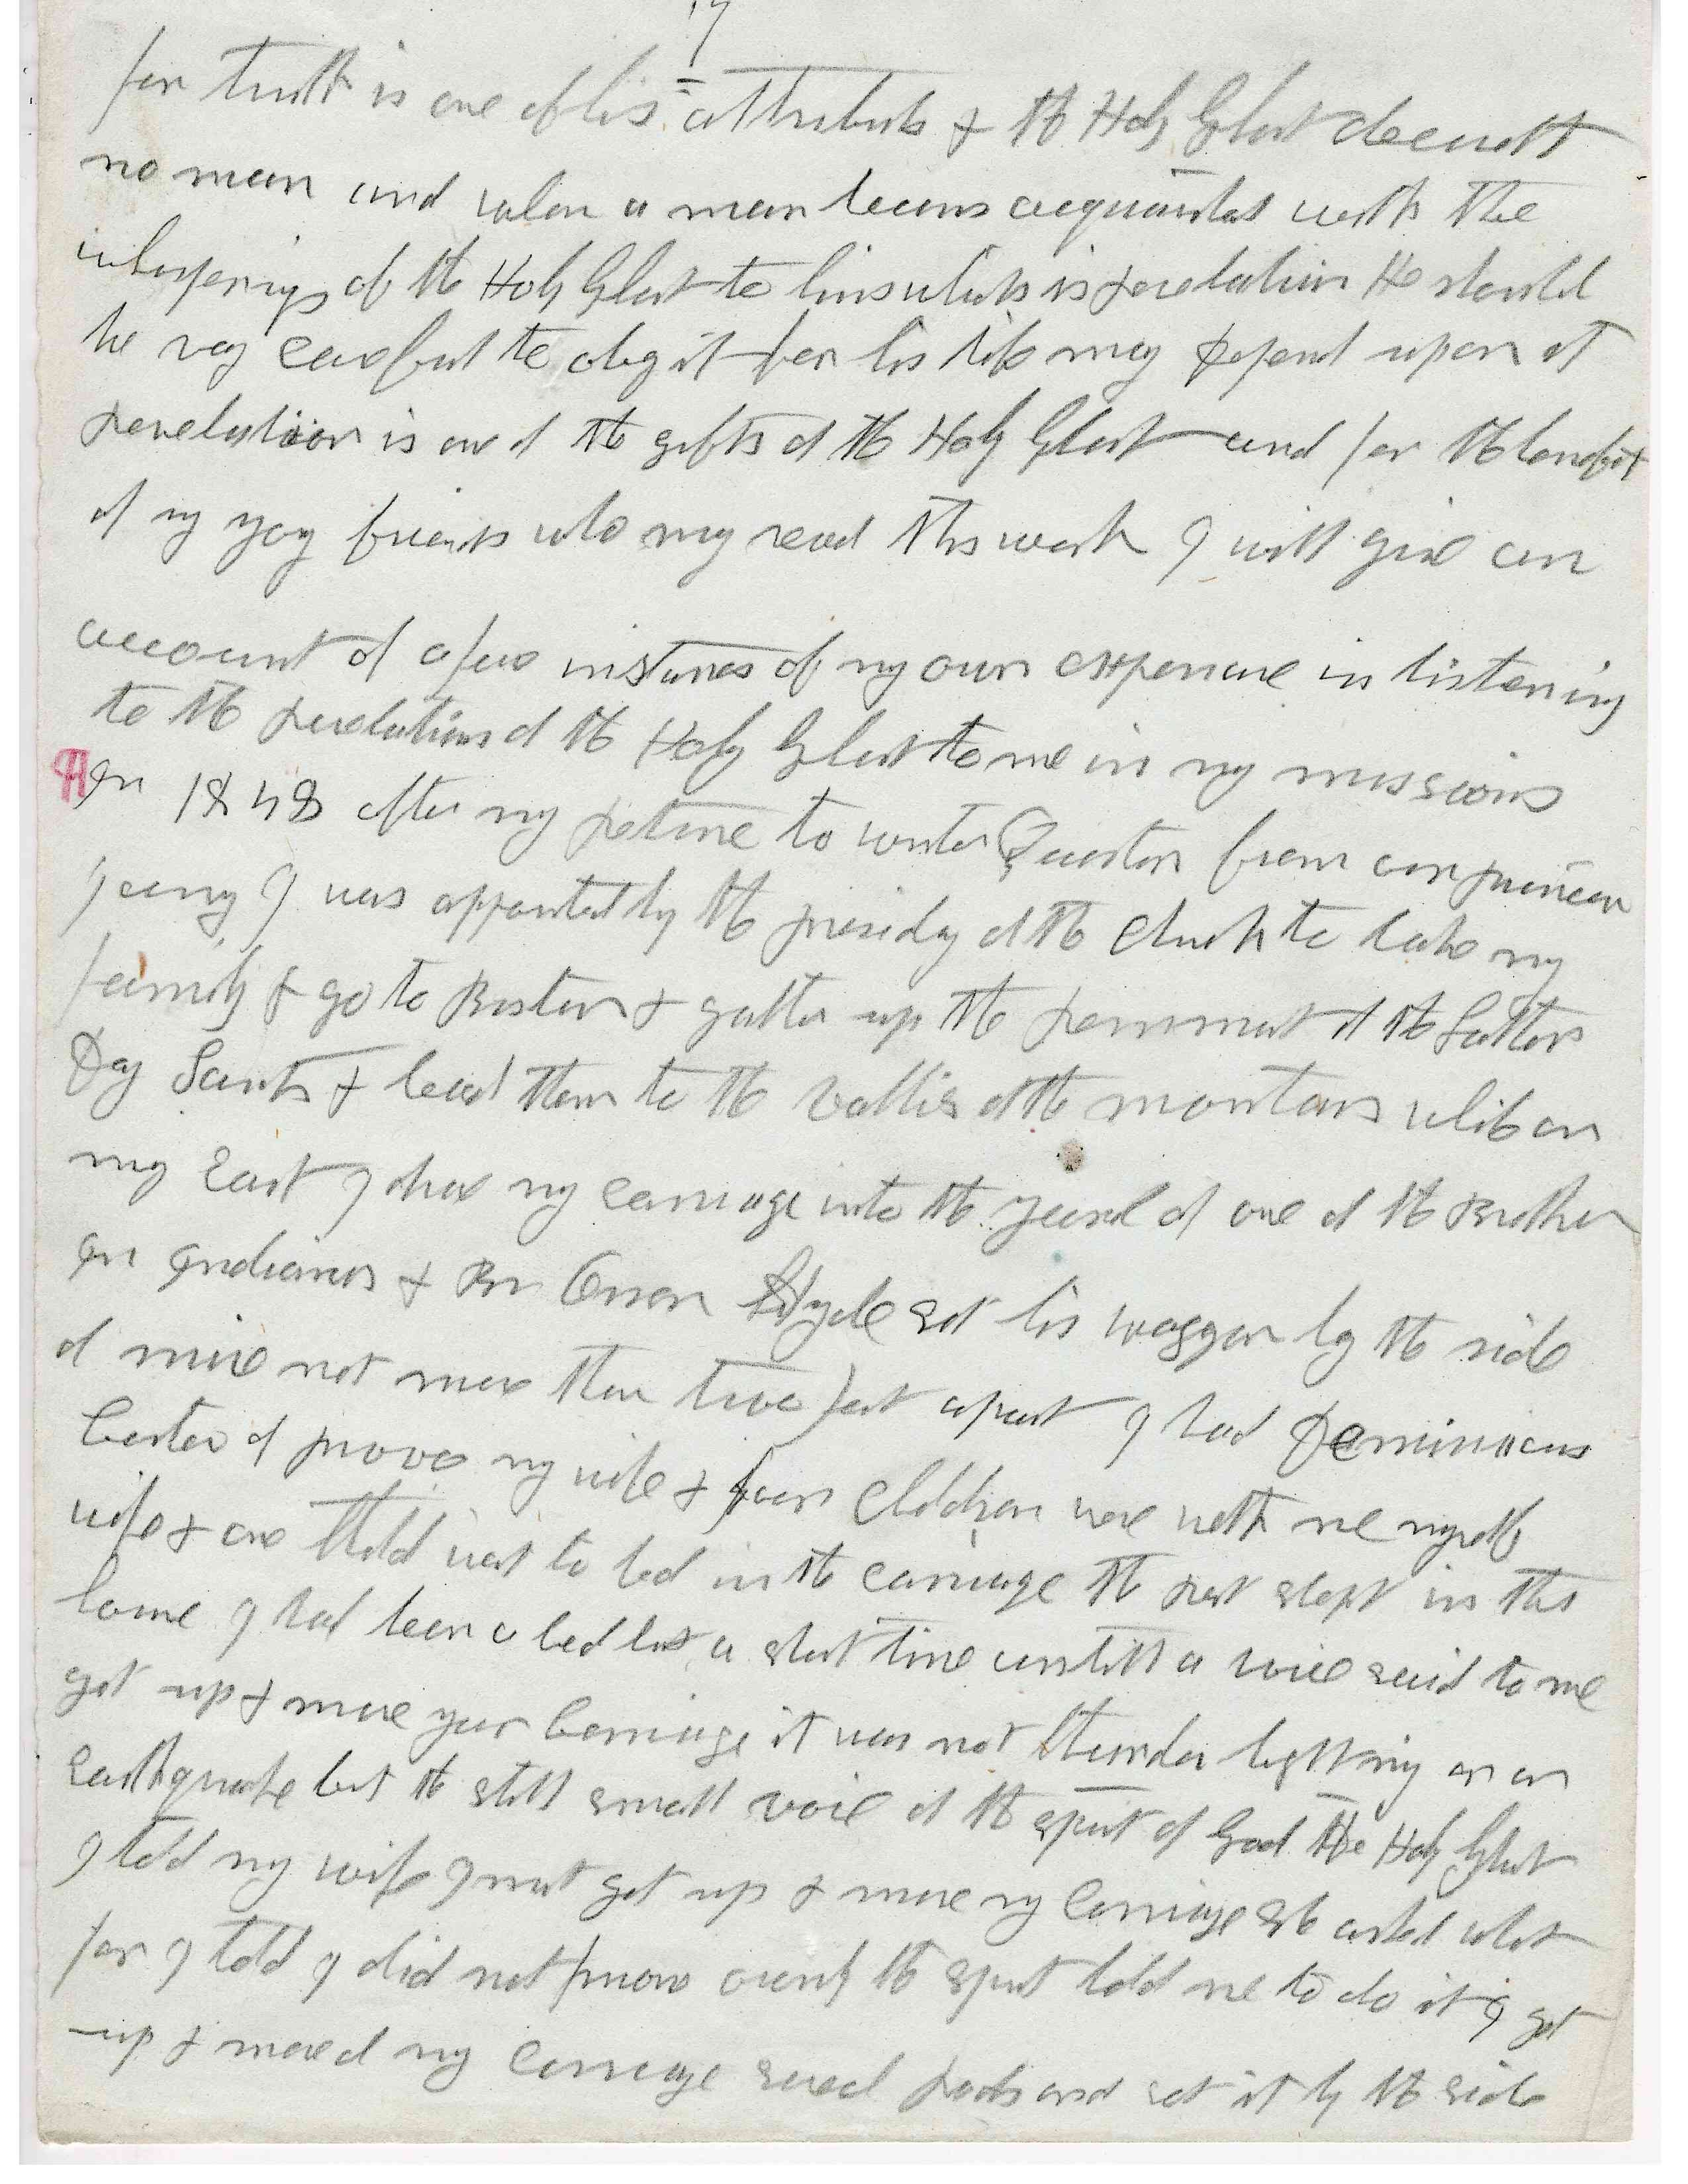 17
for truth is one of his attributs & the Holy Ghost deceiveth
no man and when a man becoms acquainted with the
whisperings of the Holy Ghost to him which is revelation He should
be very careful to obey it for his life may depend upon it
revelation is one of the gifts of the Holy Ghost and for the benefit
of my yog friends who may read this work I will give an
account of a few instances of my own experience in listening
to the revelations of the Holy Ghost to me in my missions
In 1848 after my return to winter Quarters from our pioneer
Journy I was appointed by the presidcy of the Church to take my
family & go to Boston & gather up the remnant of the Latter
Day Saints & lead them to the vallies of the mountains while on
my East I drove my carriage into the yeard of one of the Brethren
In Indiana & Br Orson Hyde set his waggon by the side
of mine not more than two feet apart I had Deminicus
Carter of provo my wife & four Children were with me myself
wife & one Child went to bed in the carriage the rest slept in the
house I had been a bed but a short time untill a voice said to me
get up & move your Carriage it was not thunder lightning or an
Earthquake but the still small voice of the spirit of God The Holy Ghost
I told my wife I must get up & move my Carriage she asked what
for I told I did not know ownly the spirit told me to do it I got
up & moved my Carriage several rods and set it by the side